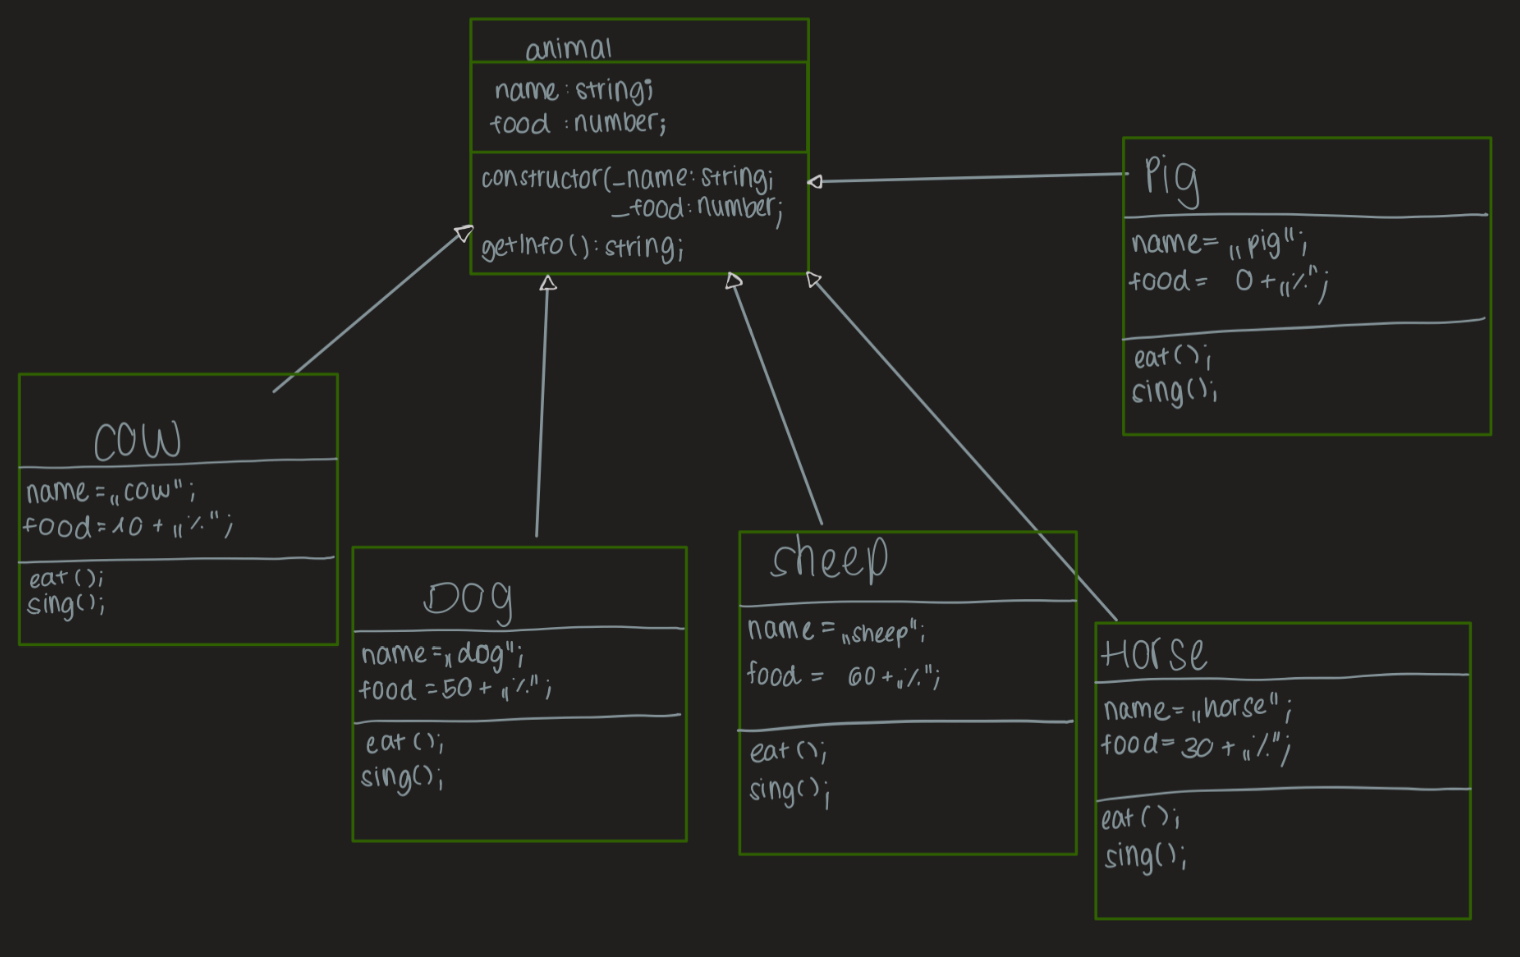 animal
name: string;
food : number;
constructor(_name: string;
_food: number;
getInfo(): string;
Pig
name= „pig";
food= 0+„%";
eat();
sing();
COW
name=„cow";
food=10+„%";
eat();
sing();
DOg
name=„dog";
food =50+„%";
eat();
sing();
sheep
name=„sheep";
food = 60+„%";
eat();
sing();
Horse
name=„horse";
food=30+„%";
eat();
sing();